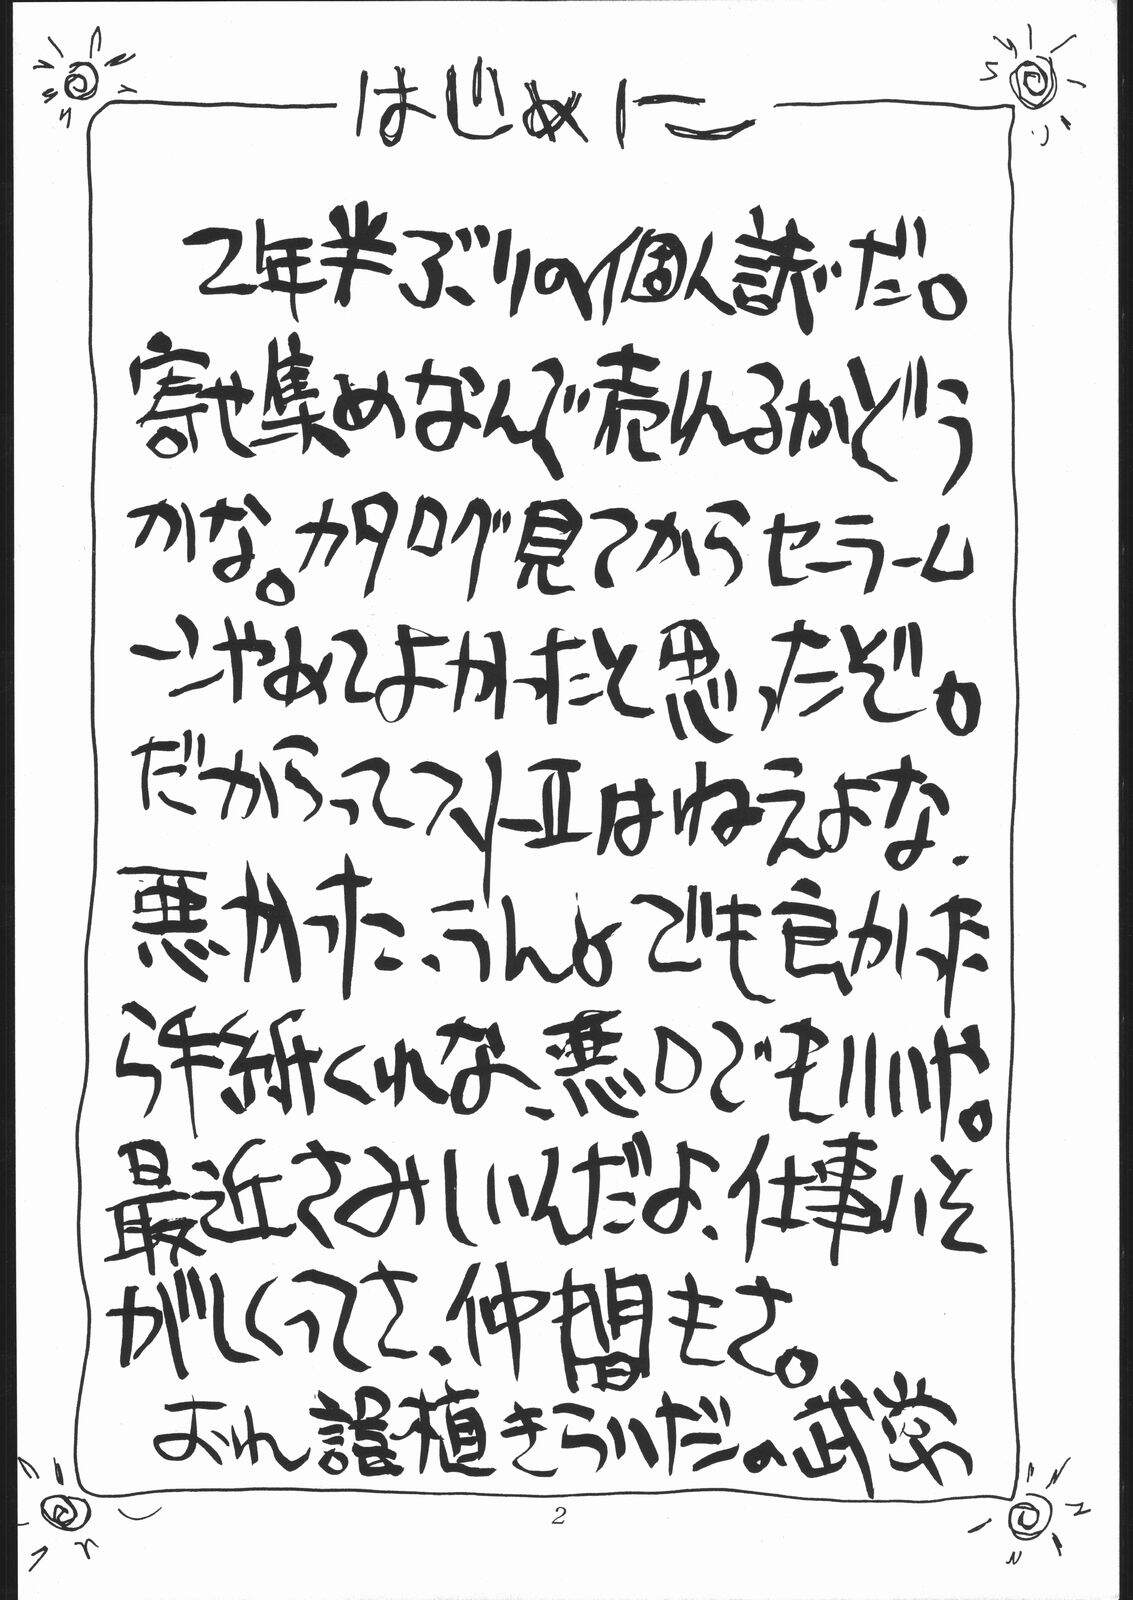 はじめに
2年半ぶりの個人誌だ。
寄せ集めなんで売れるかどう
かな。カタログ見てからセーラーム
ーンやめてよかったと思ったぞ。
だからってスリーエはねえよな、
悪かった、うん。でも良かった
ら手紙くれな、悪口でもいいや。
最近さみしいんだよ、仕事いそ
がしくってさ、仲間もさ。
おれ誤植きらいだ。武学
2